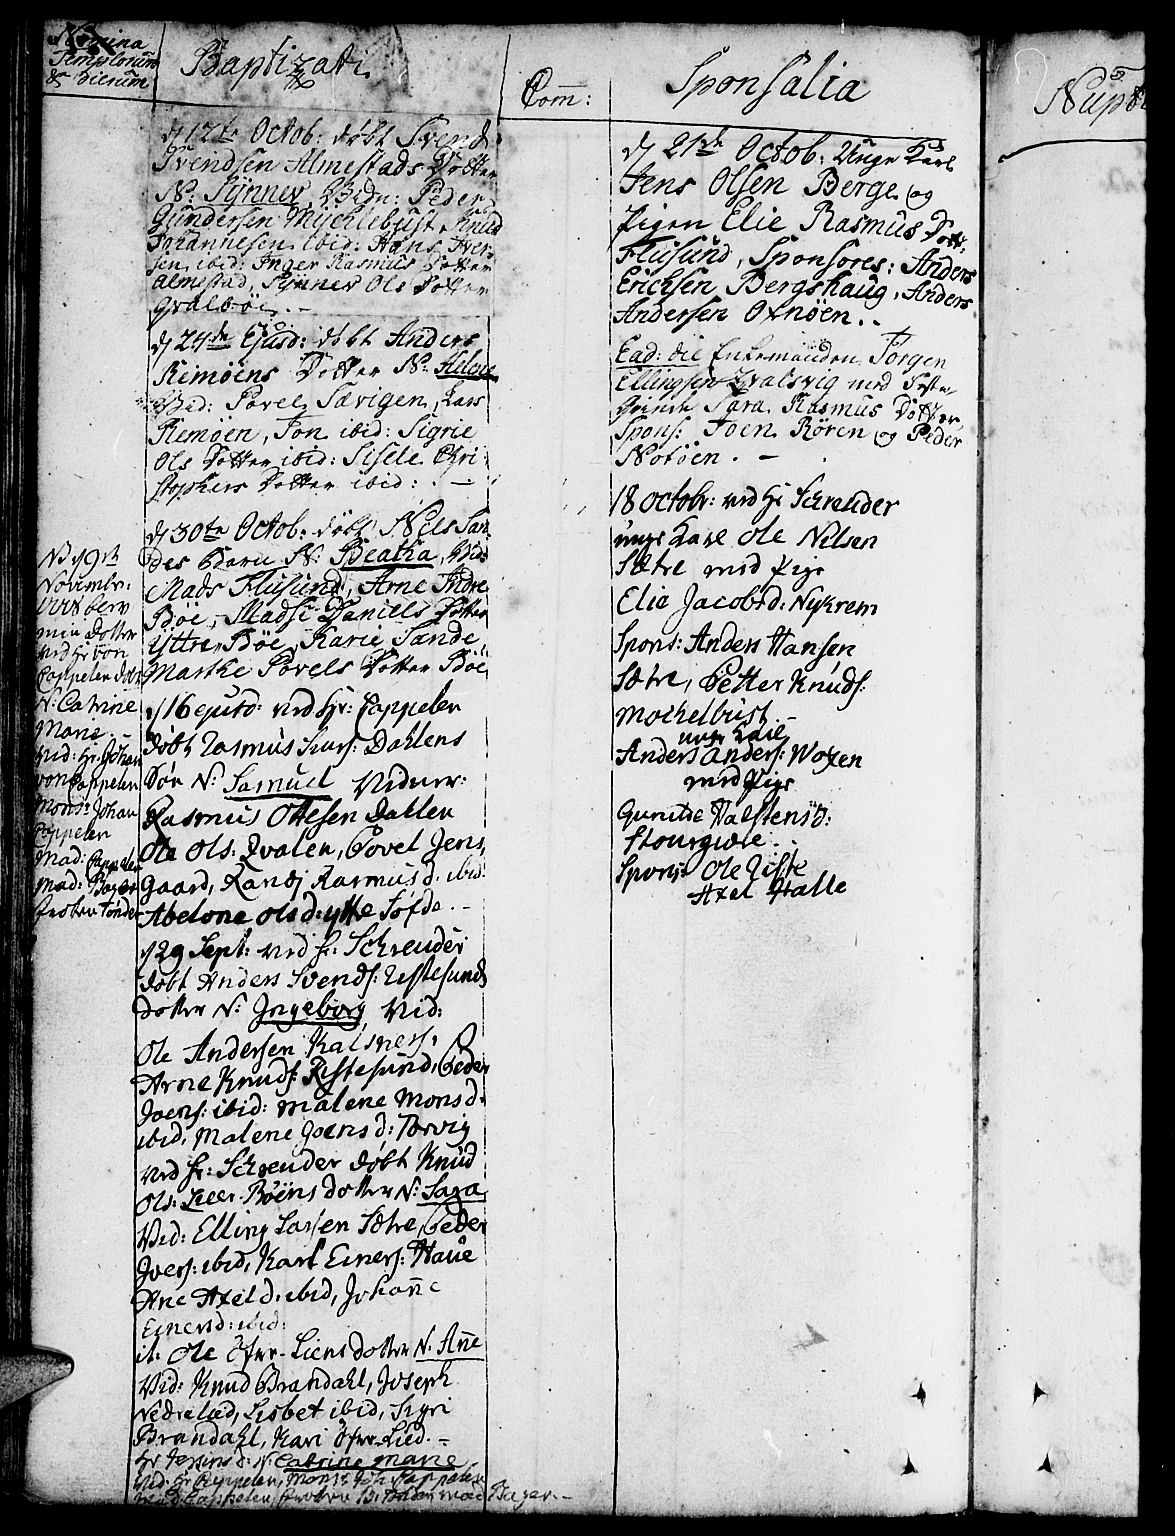 Nomina
Templorum
& Dierum
Baptizati
d 12te Octob: døbt Svend
Svendsen Almestads Dotter
N: Synnev, Vidn: Peder
Gundersen Mychlebust, Knud
Johannesen ibid: Hans Iver-
sen ibid: Inger Rasmus Dotter
Almestad, Synnev Ols Dotter
d 24de Ejusd: døbt Anders
Remøens Dotter N: Helene
Vid: Povel Sævigen, Lars
Remøen, Jon ibid: Sigrie
Ols Dotter ibid: Sisele Chri-
stophers Dotter ibid: . —
d 30te Octob: døbt Niels San-
des Barn N: Beatha, Vid:
Mads Flusund, Arne Indre
Bøe, Madsi Daniels Dotter
Yttre Bøe, Karie Sande
Marthe Povels Dotter Bøe
d 16 ejusd: ved Hr: Cappelen
døbt Rasmus Dahlens
Søn N: Samuel Vidner:
Rasmus Ottesen Dallen
Ole Ols: Qvalen, Povel Jens
Gaard, Randj Rasmusd: ibid:
Abelone Olsd: ytte Søfde. -
d 29 Sept: ved Hr. Schreuder
døbt Anders Svends: Ristesunds
dotter N: Ingeborg Vid:
Ole Andersen Kalsnes,
Arne Knuds: Ristesund, Peder
Joens: ibid: Malene Monsd:
ibid, Malene Joensd: Torvig
ved Hr: Schreuder døbt Knud
Ols: Leer-Bøens dotter N: Sara
Vid: Elling Larsen Sætre, Peder
Ivers: ibid, Karl Einers: Haue
Ane Axeld: ibid, Johanne
Einersd: ibid:
it: Ole Øfre-Liens dotter N: Anne
Vid: Knud Brandahl, Joseph
Nedrelied, Lisbet ibid, Sigri
Brandahl, Kari Øfre-Lied. -
N: Catrine Marie
Vid: Hr Cappelen, Mons: Joh: Cappelen
Bager. -
Nd 19de
Novembr:
min dotter
ved Hr von
Cappelen døbt
N: Catrine
Marie. -
Vid: Hr: Johan
von Cappelen
Mons: Johan
Cappelen
Mad: Cappelen
Mad: Bager
Com:
Sponsalia
d 21de Octob: Unge Karl
Jens Olsen Berge og
Pigen Elie Rasmus Dott:
Flusund, Sponsores: Anders
Erichsen Bergshaug, Anders
Andersen Oxnöen. .
Ead: die Enkemanden Jørgen
Ellingsen Qvalsvig med Fæste-
Qvinde Sara Rasmus Dotter,
Spons: Joen Rören og Peder
Notöen. —
18 Octobr: ved Hr Schreuder
unge Karl Ole Nilsen
Sætre med Pige
Elie Jacobsd: Nykrem
Spons: Anders Hansen
Sætre, Petter Knuds:
Mockelbust –
unge Karl
Anders Anders: Woxen
med Pige
Gunilde Halstensd:
Spons: Ole Riste
Axel Halle
Nupti